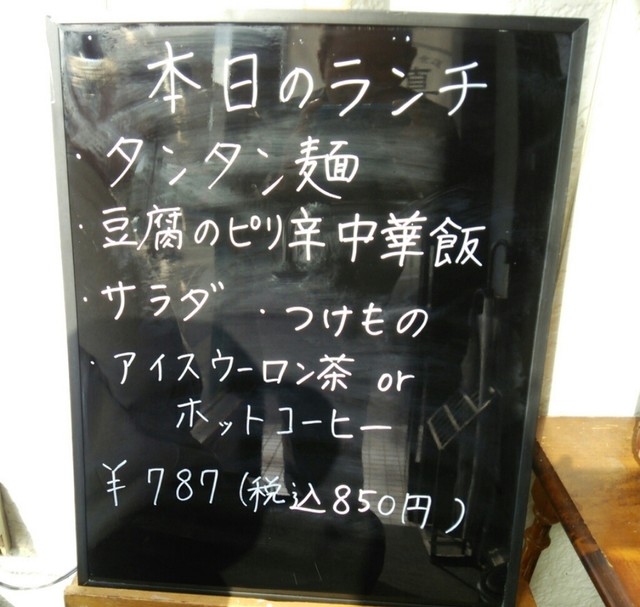 本日のランチ
・タンタン麺
・豆腐のピリ辛中華飯
・サラダ ・つけもの
・アイスウーロン茶 or
ホットコーヒー
¥787(税込850円)